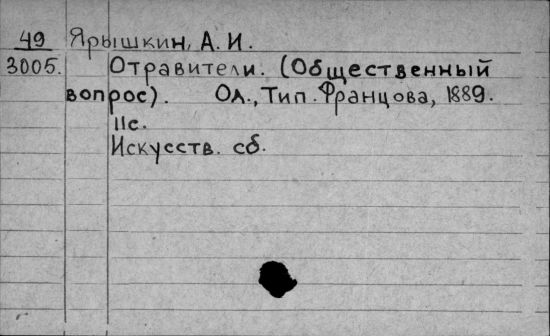 49 Ярышкин, А. И.
3005. Отравители. (Общественный
вопрос). Од., Тип. Францова, 1889.
11с.
Искусств. сб.